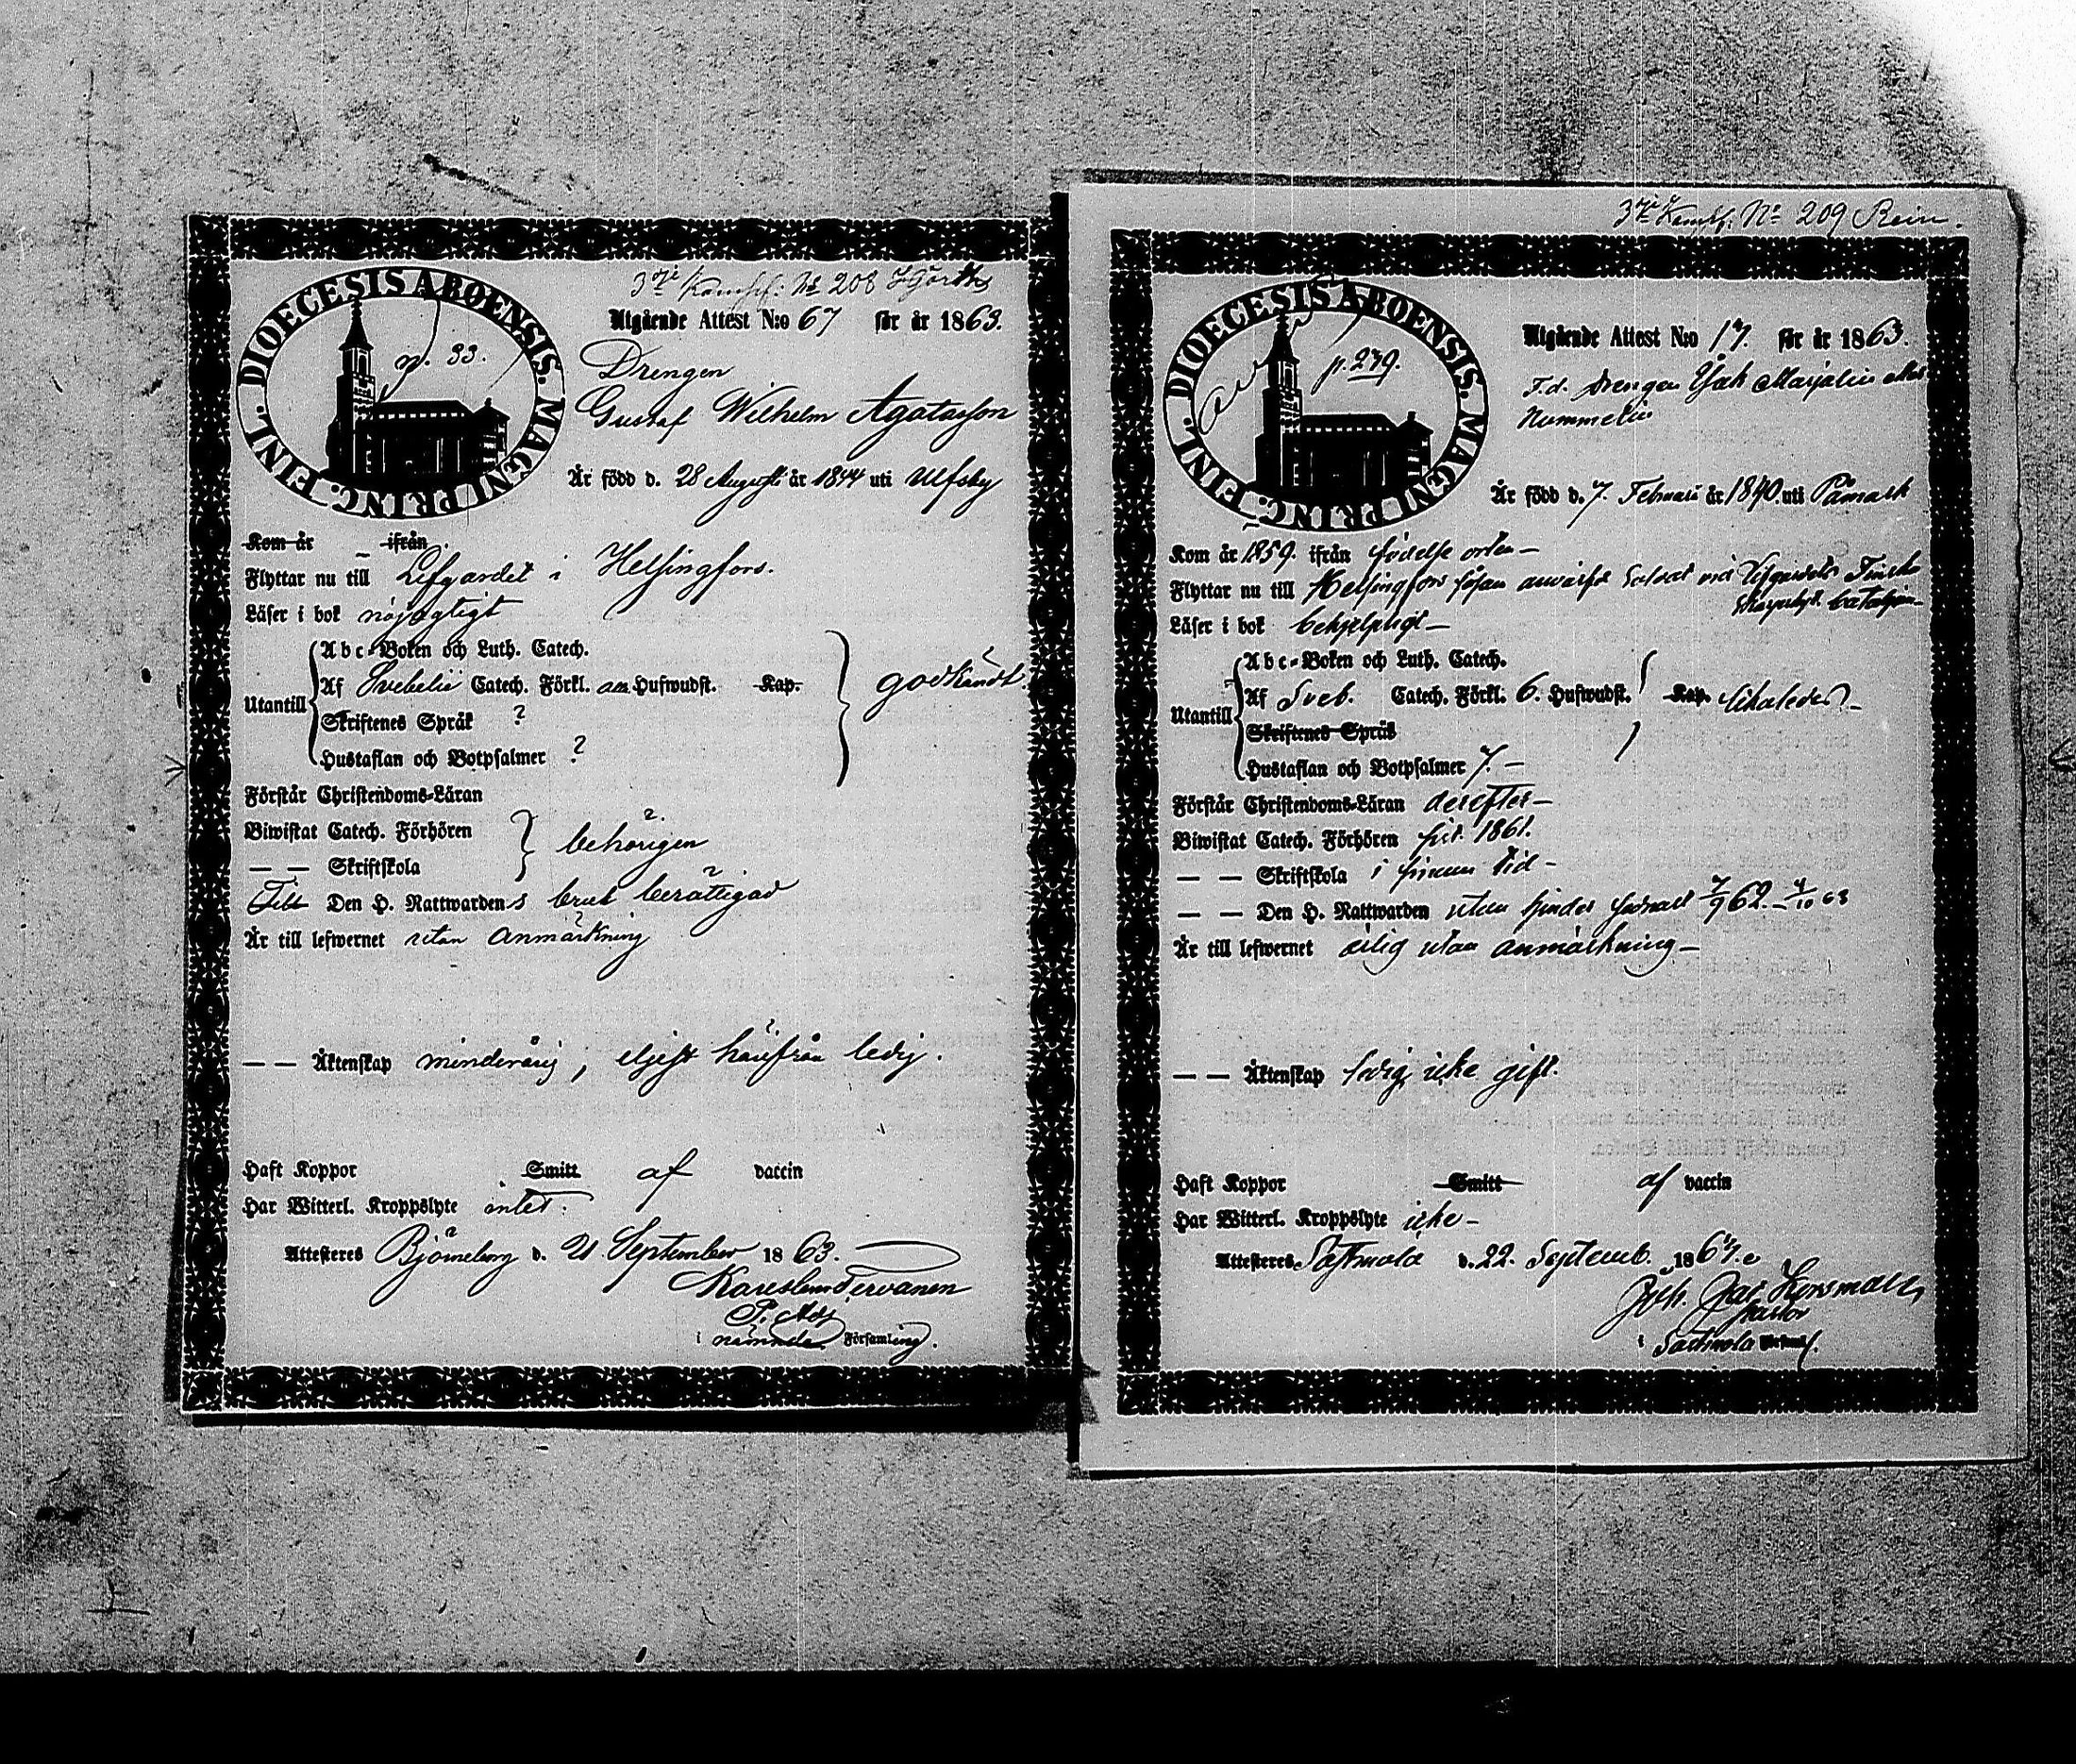 3dje Komp: No 208 Hjorth
DIOECESIS ABOENSIS. MAGNI PRINC. FINL.
p. 33.
Utgående Attest N:o 67 för år 1863.
Drengen
Gustaf Wilhelm Agatasson
Är född d. 28 Augusti år 1844 uti Ulfsby
Kom år — ifrån
Flyttar nu till Lifgardet i Helsingfors.
Läser i bok nöjagtigt
Abc-Boken och Luth. Catech.
Utantill
Af Svebelii Catech. Förkl. Hufwudst. Kap. godkändt.
Skriftenes Språk ?
Hustaflan och Botpsalmer ?
Förstår Christendoms-Läran
Biwistat Catech. Förhören
behörigen
— — Skriftskola
Till Den H. Nattwardens bruk berättigad
Är till lefwernet utan anmärkning
— — Äktenskap minderårig, härifrån ledig.
Haft Koppor Smitt af vaccin
Har Witterl. Kroppslyte intet.
Attesteres Björneborg d. 21 September 1863.
Tervanen
P. Adj
i nämnde Församling.
3dje Komp. No 209 Rein.
DIOECESIS ABOENSIS. MAGNI PRINC. FINL.
p. 239.
Utgående Attest N:o 17. för år 1863.
F.d. Drengen Isak Marjelin
Nummelin
Är född d. 7. Februari år 1840. uti Påmark
Kom år 1859. ifrån födelse orten —
Flyttar nu till Helsingfors såsom anwärfd Soldat vid Lifgardets Finska
Skarpskytt. bataljon —
Läser i bok behjelpligt —
Abc-Boken och Luth. Catech.
Utantill
Af Sveb. Catech. Förkl. 6. Hufwudst. Kap. likaledes —
Skriftenes Språk
Hustaflan och Botpsalmer 7. —
Förstår Christendoms-Läran derefter —
Biwistat Catech. Förhören sist. 1861.
— — Skriftskola i sinom tid —
— — Den H. Nattwarden utan hinder 7/9 62. 4/10 63
Är till lefwernet ärlig utan anmärkning —
— — Äktenskap ledig, icke gift.
Haft Koppor Smitt af vaccin
Har Witterl. Kroppslyte icke —
Attesteres Sastmola d. 22. Septemb. 1863.
Joh. Jac. Horsman
Pastor
i Sastmola